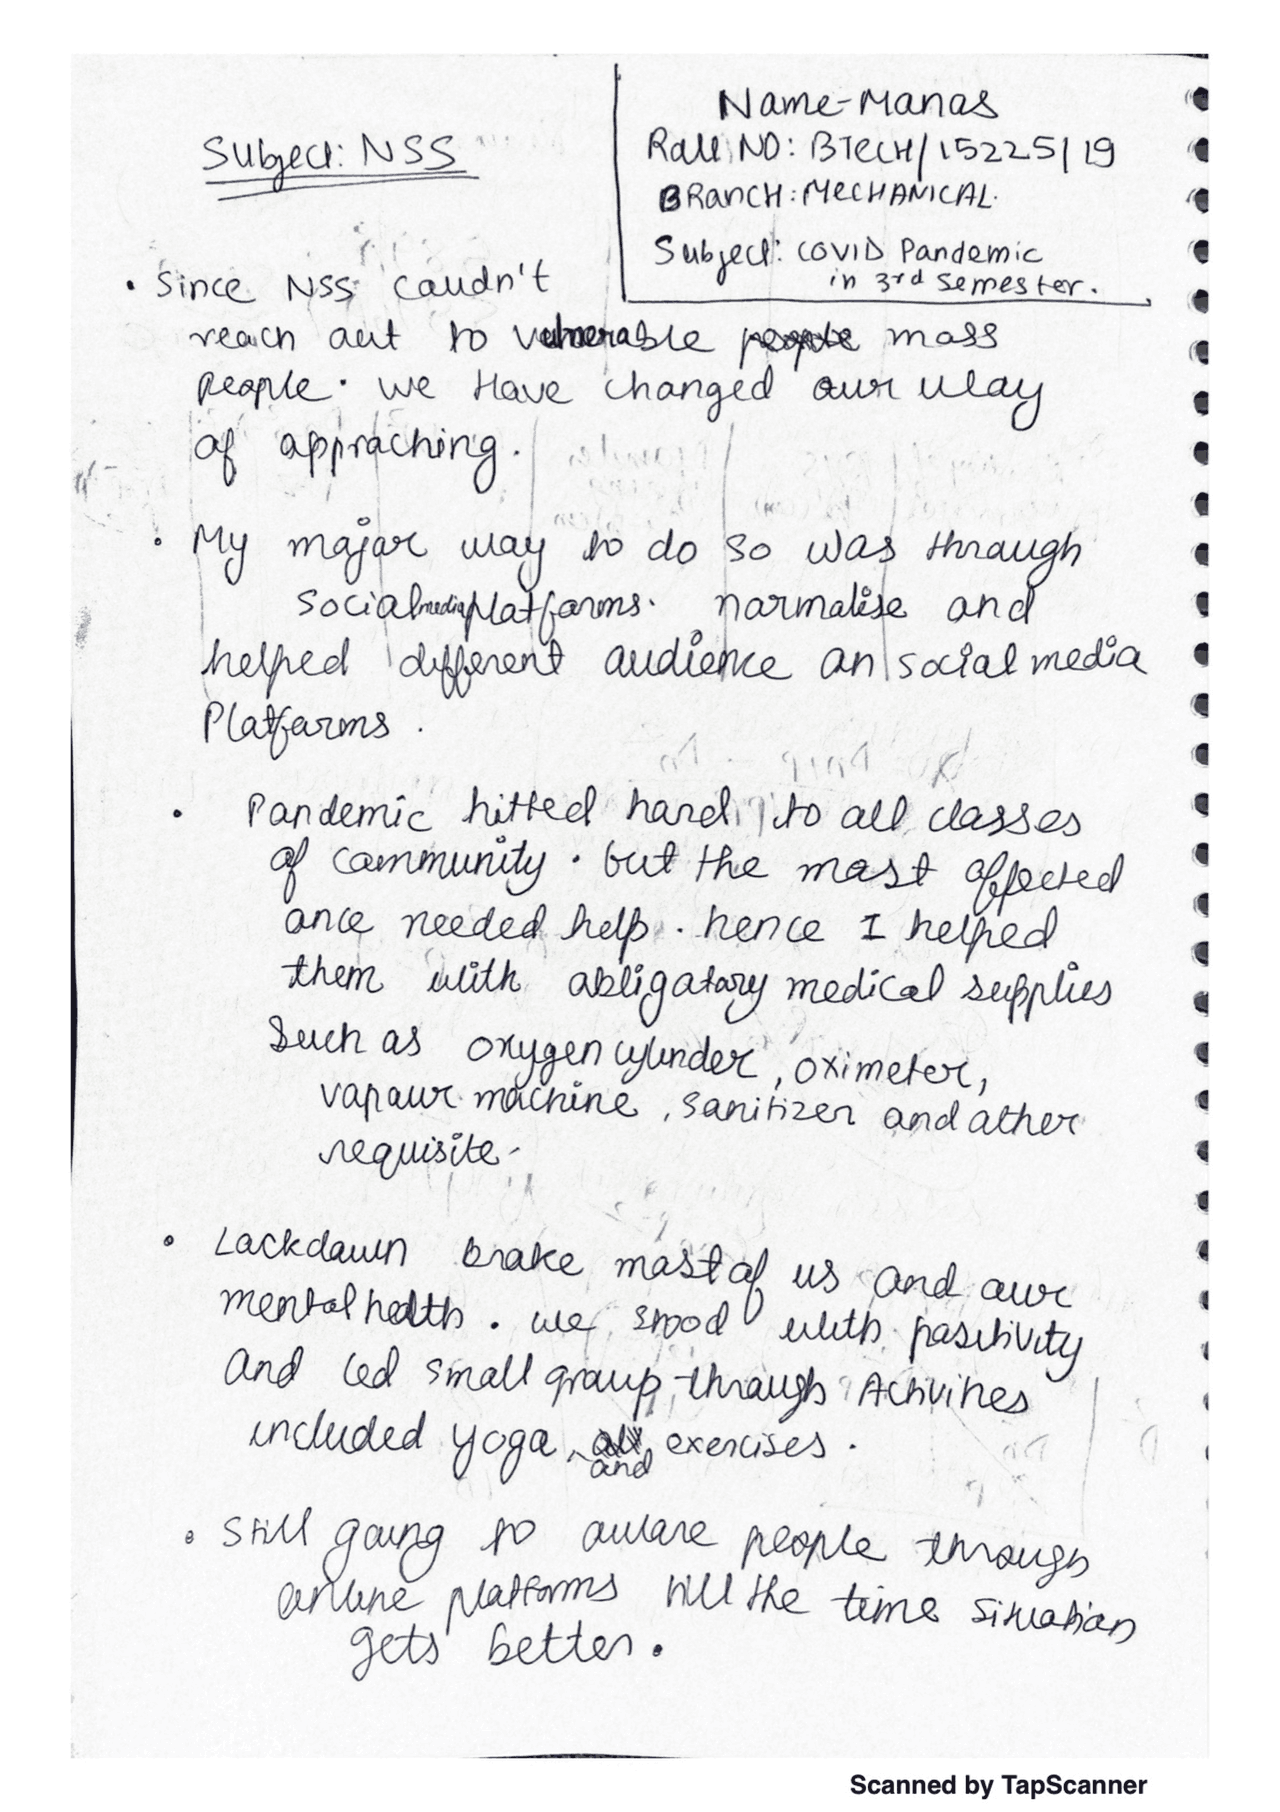 Subject: NSS
Name-Manas
Roll NO: BTECH/15225/19
BRANCH: MECHANICAL.
Subject: COVID Pandemic
in 3rd Semester.
• Since NSS coudn't
reach out to vulnerable mass
people. we Have changed our way
of appraching.
• My major way to do so was through
social media platforms. normalise and
helped different audience on social media
Platforms.
• Pandemic hitted hard to all classes
of community. but the most affected
once needed help. hence I helped
them with obligatory medical supplies
Such as oxygen cylinder, oximeter,
vapour machine, sanitizer and other
requisite.
• Lockdown broke most of us and our
mental health. we stood with positivity
and led small group through Activities
included yoga, and exercises.
• Still going to aware people through
online platforms till the time situation
gets better.
Scanned by TapScanner